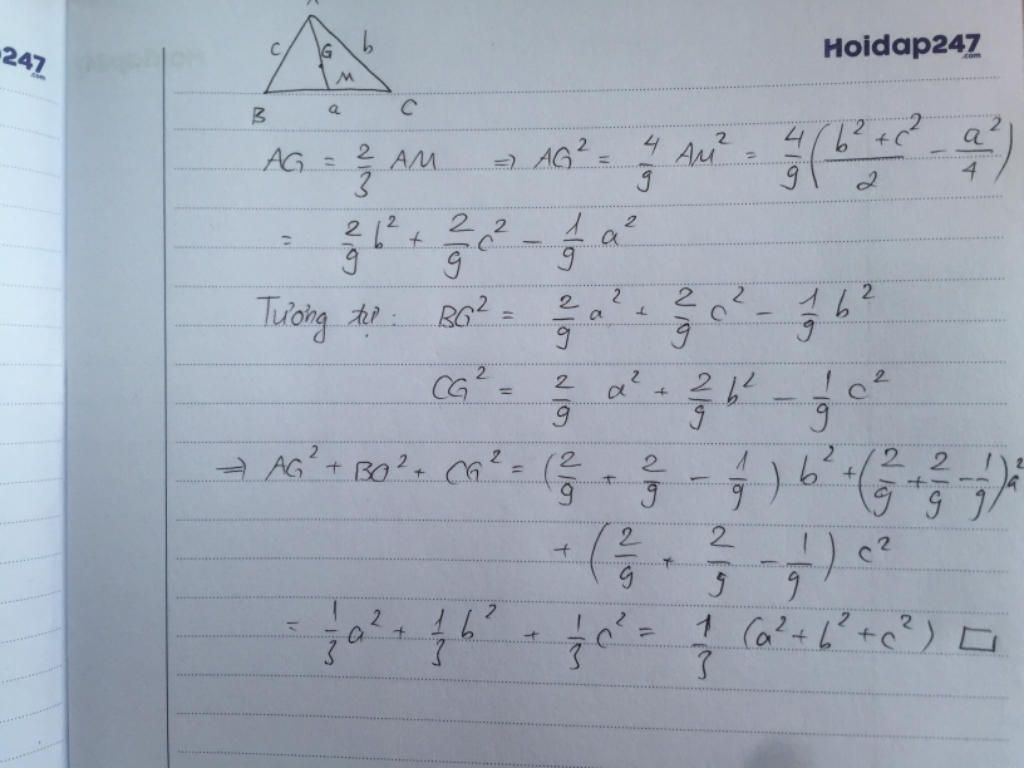 Hoidap247
.com
A
c G b
M
B a C
AG = 2/3 AM ⇒ AG² = 4/9 AM² = 4/9 ( (b² + c²)/2 − a²/4 )
= 2/9 b² + 2/9 c² − 1/9 a²
Tương tự: BG² = 2/9 a² + 2/9 c² − 1/9 b²
CG² = 2/9 a² + 2/9 b² − 1/9 c²
⇒ AG² + BG² + CG² = (2/9 + 2/9 − 1/9) b² + (2/9 + 2/9 − 1/9) a²
+ (2/9 + 2/9 − 1/9) c²
= 1/3 a² + 1/3 b² + 1/3 c² = 1/3 (a² + b² + c²) □